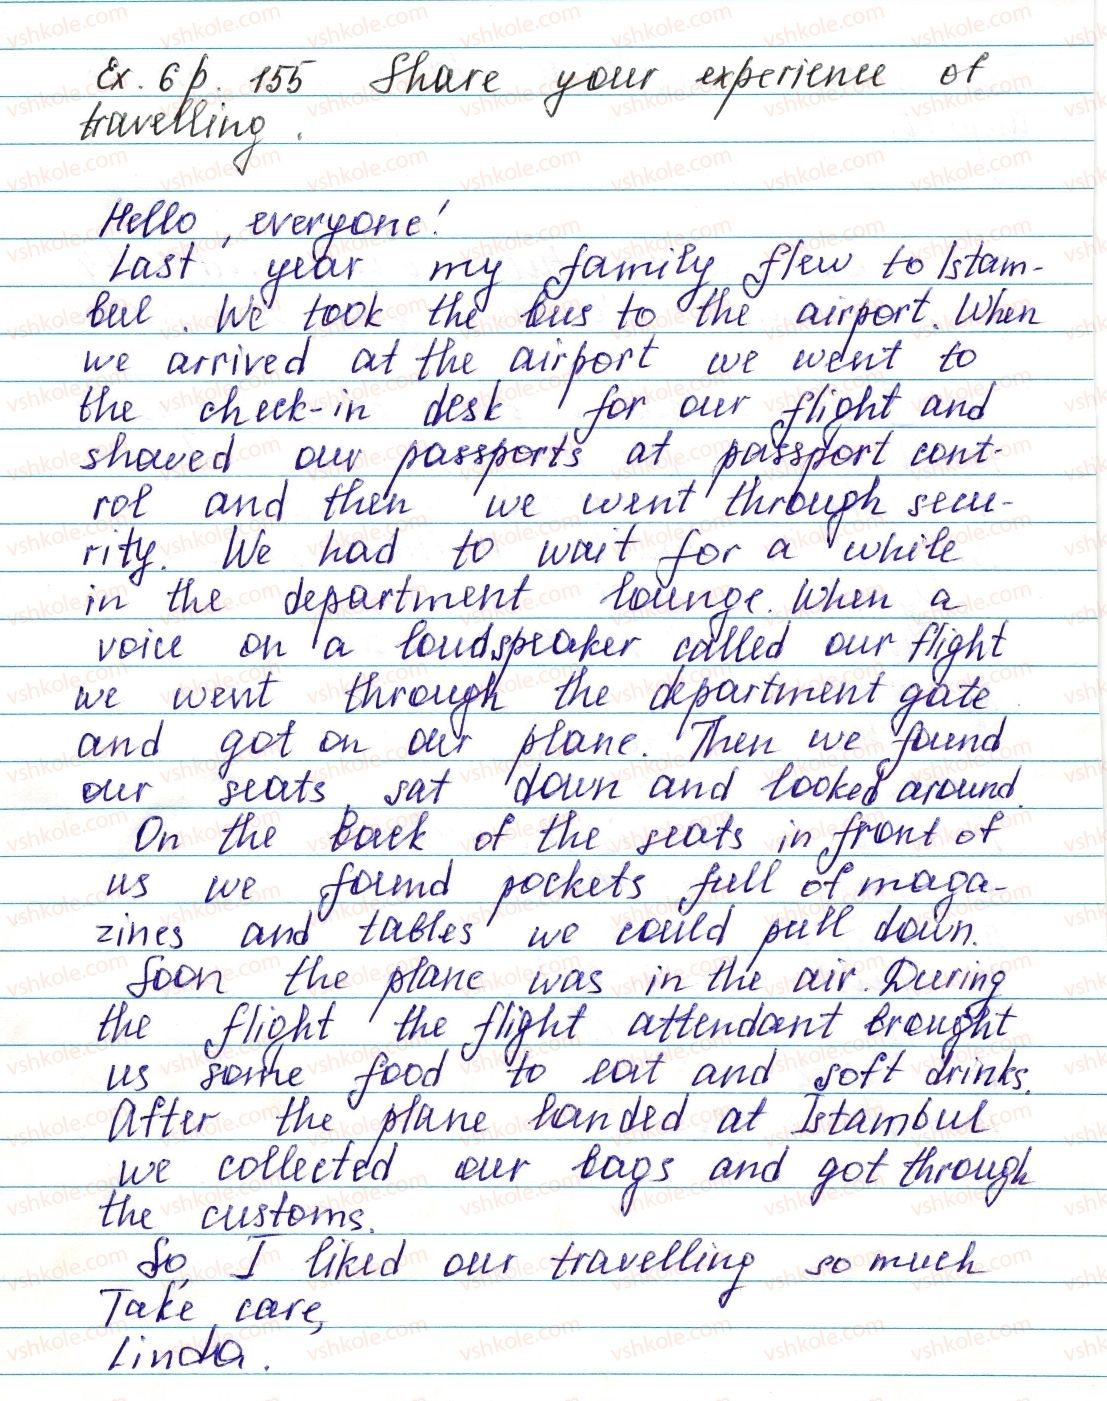 Ex. 6 p. 155 Share your experience of
travelling.
Hello, everyone!
Last year my family flew to Istam-
bul. We took the bus to the airport. When
we arrived at the airport we went to
the check-in desk for our flight and
showed our passports at passport cont-
rol and then we went through secu-
rity. We had to wait for a while
in the department lounge. When a
voice on a loudspeaker called our flight
we went through the department gate
and got on our plane. Then we found
our seats, sat down and looked around.
On the back of the seats in front of
us we found pockets full of maga-
zines and tables we could pull down.
Soon the plane was in the air. During
the flight the flight attendant brought
us some food to eat and soft drinks.
After the plane landed at Istambul
we collected our bags and got through
the customs.
So, I liked our travelling so much
Take care,
Linda.